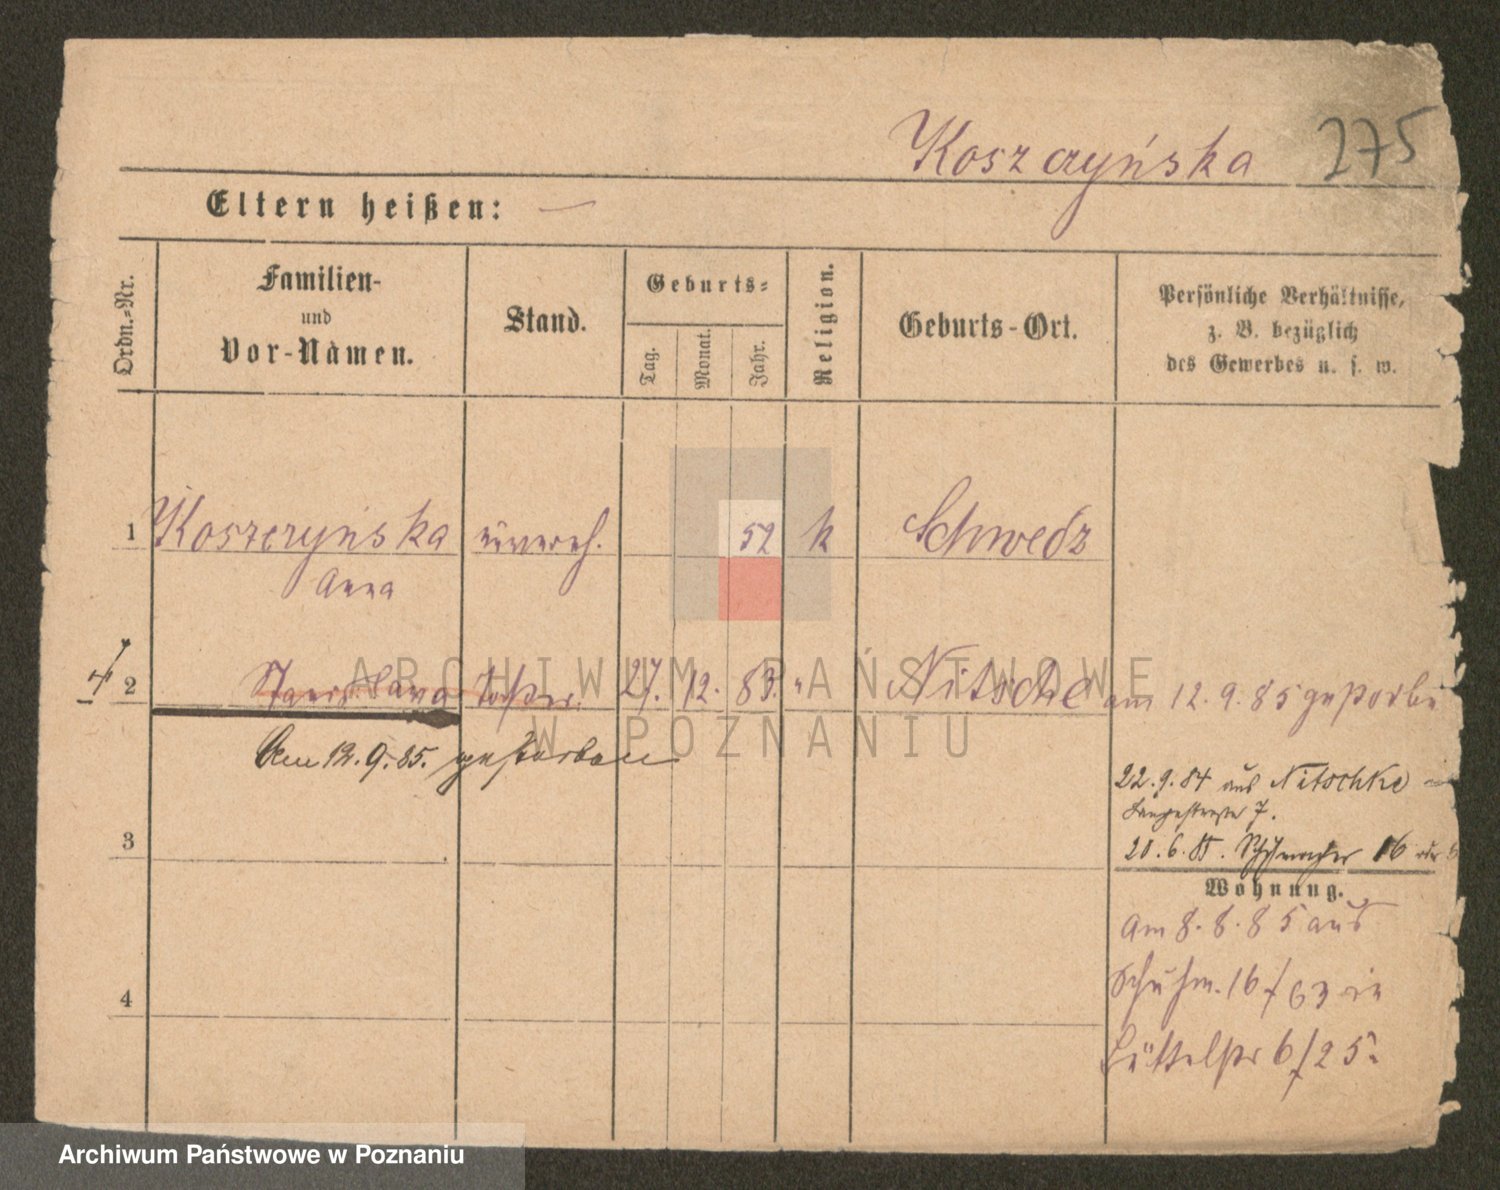 Koszczyńska 275
Eltern heißen: —
Ordn.-Nr.
Familien-
und
Vor-Namen.
Stand.
Geburts-
Tag.
Monat.
Jahr.
Religion.
Geburts-Ort.
Persönliche Verhältnisse,
z. B. bezüglich
des Gewerbes u. s. w.
1 Koszczyńska unvereh. 52 k Schwedz
Anna
2 Stanislawa Tochter 27. 12. 83. " Nitsche am 12.9.85 gestorben
Am 12.9.85. gestorben
22.9.84 aus Nitschke
Langestrasse 7.
3
20.6.85. Schuhmacher 16
Wohnung.
am 8.8.85 aus
Schuhm. 16/63 in
4
Büttelstr 6/25
ARCHIWUM PAŃSTWOWE
W POZNANIU
Archiwum Państwowe w Poznaniu